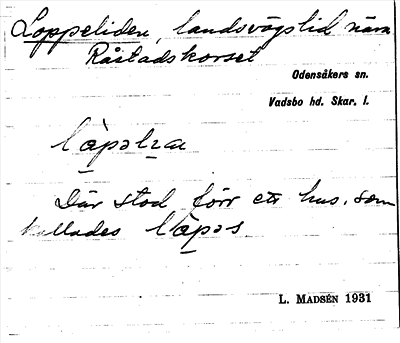 Loppeliden, landsvägslid nära
Råstadskorset
Odensåkers sn.
Vadsbo hd. Skar. l.
Där stod förr ett hus, som
kallades
L. MADSÉN 1931